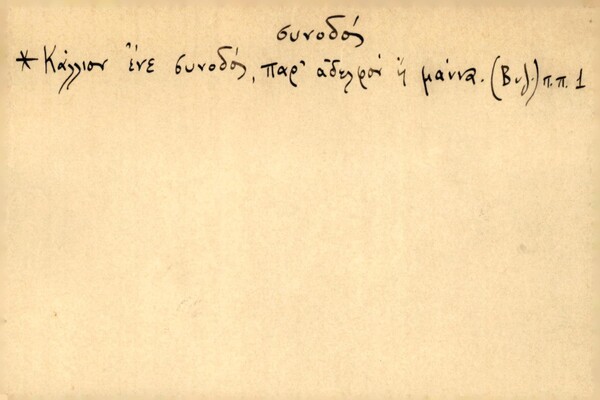 συνοδός
* Κάλλιον ἔνε συνοδός, παρ' ἀδελφὸν ἢ μάννα. (Βυζ.) π.π. 1